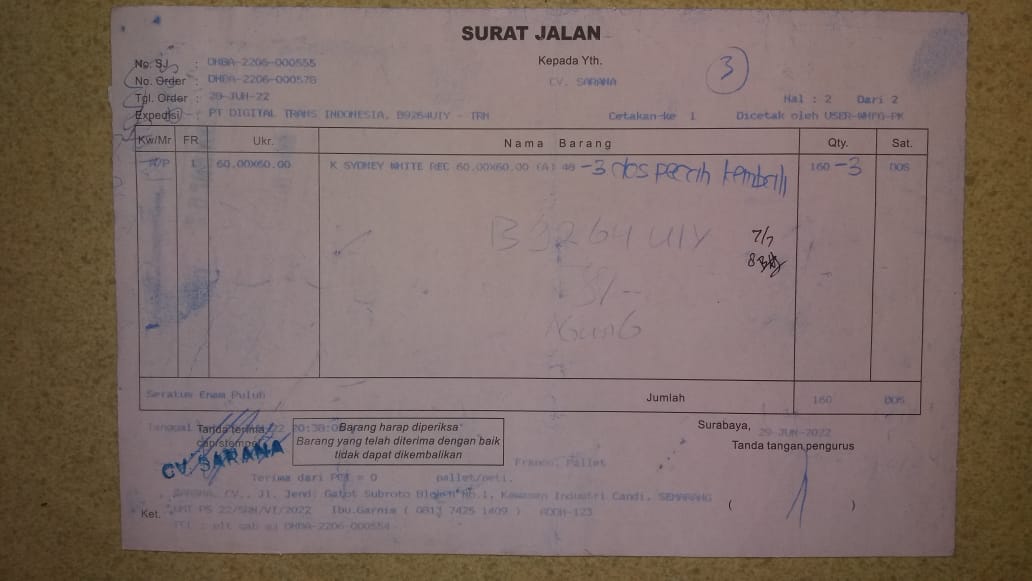 SURAT JALAN
3
No. SJ : DHBA-2206-000555
Kepada Yth.
No. Order : DHBA-2206-000578
CV. SARANA
Tgl. Order : 29-JUN-22
Hal : 2 Dari 2
Expedisi : PT DIGITAL TRANS INDONESIA, B9264UIY - TRN
Cetakan-ke 1 Dicetak oleh USER-WHFG-PK
Kw/Mr FR Ukr. Nama Barang Qty. Sat.
1 60.00X60.00 K SYDNEY WHITE REC 60.00X60.00 (A) 40 -3 dos pecah kembali 160 -3 DOS
B 9264 UIY
7/7
8
Agung
Seratus Enam Puluh Jumlah 160 DOS
Tanggal
Tanda terima,
cap/stempel
CV. SARANA
Barang harap diperiksa
Barang yang telah diterima dengan baik
tidak dapat dikembalikan
Surabaya, 29-JUN-2022
Tanda tangan pengurus
Franco, Pallet
Terima dari = 0 pallet/peti.
SARANA, CV., Jl. Jend. Gatot Subroto Blok No.1, Kawasan Industri Candi, SEMARANG
Ket. PS 22/SRN/VI/2022 Ibu.Garnis ( 0813 7425 1409 ) ADDH-123
( )
DHBA-2206-000554